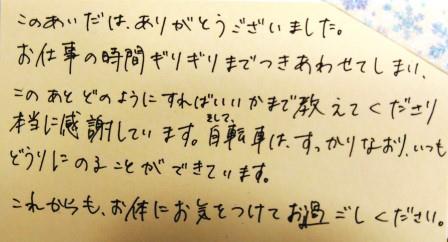 このあいだは、ありがとうございました。
お仕事の時間ギリギリまでつきあわせてしまい、
このあとどのようにすればいいかまで教えてくださり
本当に感謝しています。そして、自転車は、すっかりなおり、いつも
どうりにのることができています。
これからも、お体にお気をつけてお過ごしください。